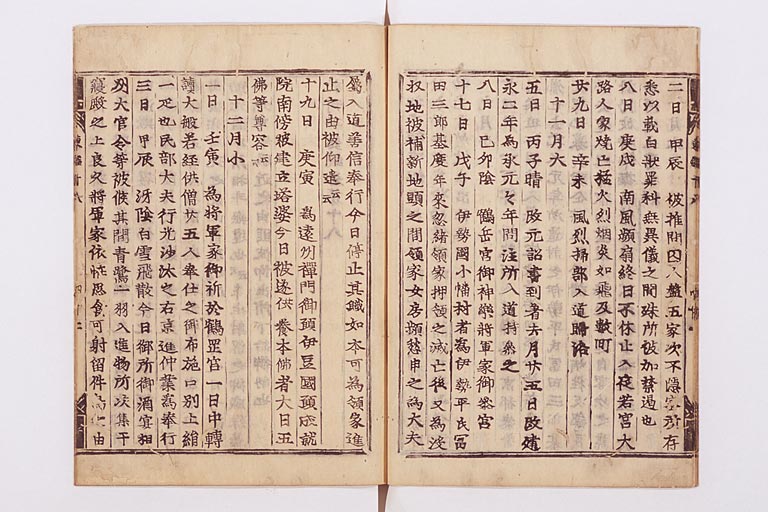 二日 甲辰 被推問囚人盛五家次不隱容所存
悉以載白狀畢科無異儀之間殊所被加禁遏也
八日 庚戌 南風頻扇終日不休止入夜若宮大
路人家燒亡猛火烈烟炎如飛及數町
廿九日 辛未 風烈掃部入道歸洛
十一月大
五日 丙子晴 改元詔書到著去月廿五日改建
永二年爲承元々年問注所入道持參之
八日 己卯陰 鶴岳宮御神樂將軍家御參宮
十七日 戊午 伊勢國小幡村者爲伊勢平氏冨
田三郎基度年來忽緒領家押領之滅亡後又爲没
收地被補新地頭之間領家女房頻愁申之爲大夫
屬入道善信奉行今日停止其職如本可爲領家進
止之由被仰遣云々
十九日 庚寅 爲遠州禪門御願伊豆國願成就
院南傍被建立塔婆今日被遂供養本佛者大日五
佛等尊容云々
十二月小
一日 壬寅 爲將軍家御祈於鶴罡宮一日中轉
讀大般若經供僧廿五人奉仕之御布施口別上絹
一疋也民部大夫行光沙汰之右京進仲業爲奉行
三日 甲辰 冴陰白雪飛散今日御所御酒宴相
州大官令等被候其間青鷺一羽入進物所次集于
寢殿之上良久將軍家依恠思食可射留件鳥之由